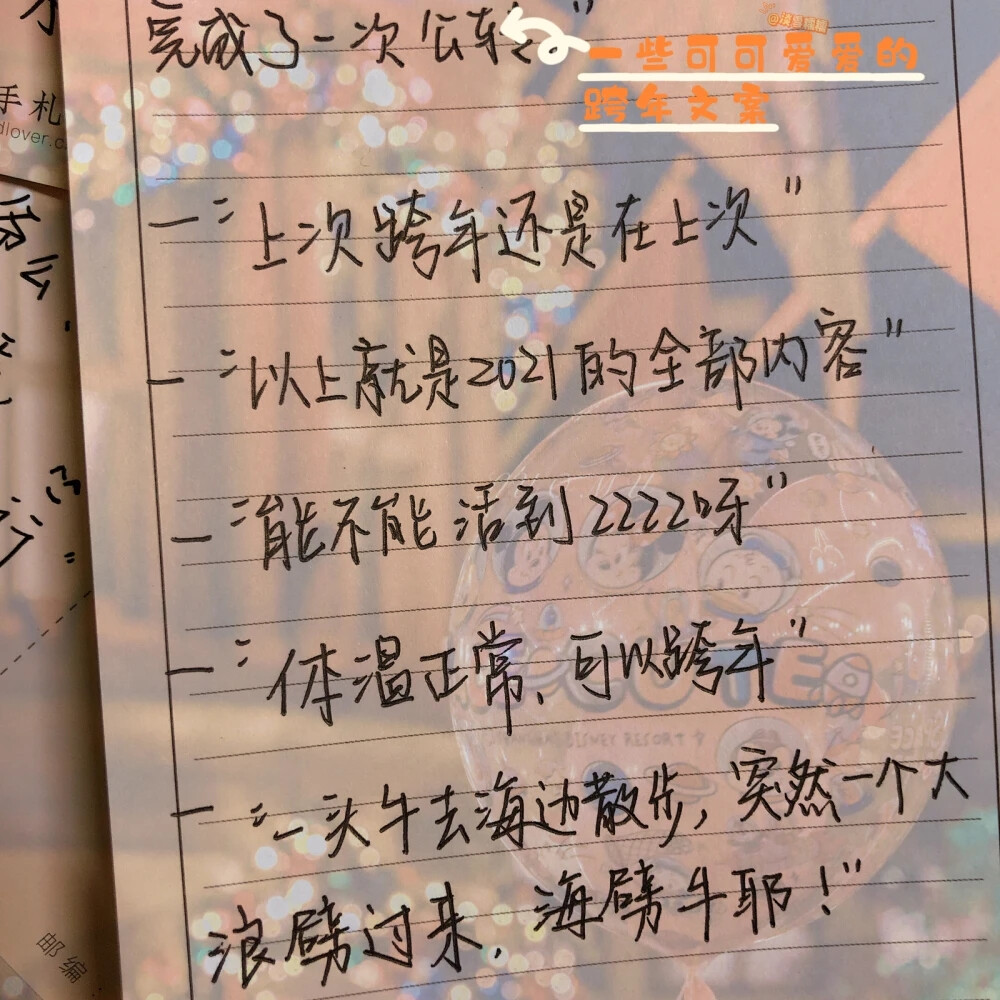 完成了一次公转"
一些可可爱爱的
跨年文案
手札
dlover.c
一"上次跨年还是在上次"
一"以上就是2021的全部内容"
一"能不能活到2222呀"
一"体温正常、可以跨年"
DISNEY RESORT
一"一头牛去海边散步,突然一个大
浪劈过来,海劈牛耶!"
邮编